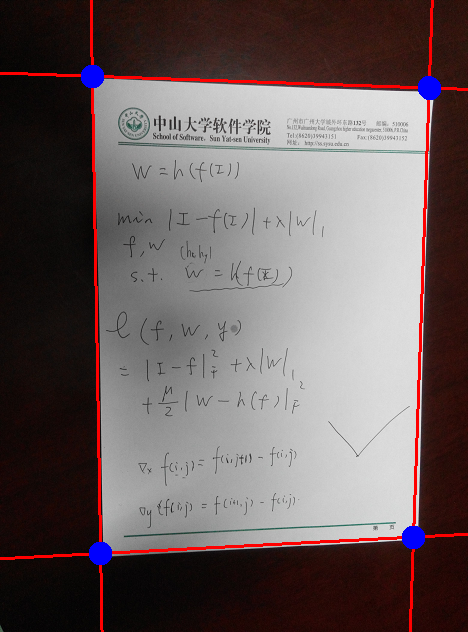 中山大学软件学院
School of Software, Sun Yat-sen University
广州市广州大学城外环东路132号 邮编: 510006
No.132,Waihuandong Road, Guangzhou higher education megacenter, 510006, P.R.China
Tel:(8620)39943151 Fax:(8620)39943152
网址: http://ss.sysu.edu.cn
W = h(f(I))
min |I-f(I)|+λ|W|₁
f, w
s.t. W = h(f(I))
ℓ(f, W, y)
= |I-f|²_F + λ|W|₁
+ μ/2 |W-h(f)|²_F
∇x f(i,j) = f(i,j+1) - f(i,j)
∇y f(i,j) = f(i+1,j) - f(i,j)
第 页